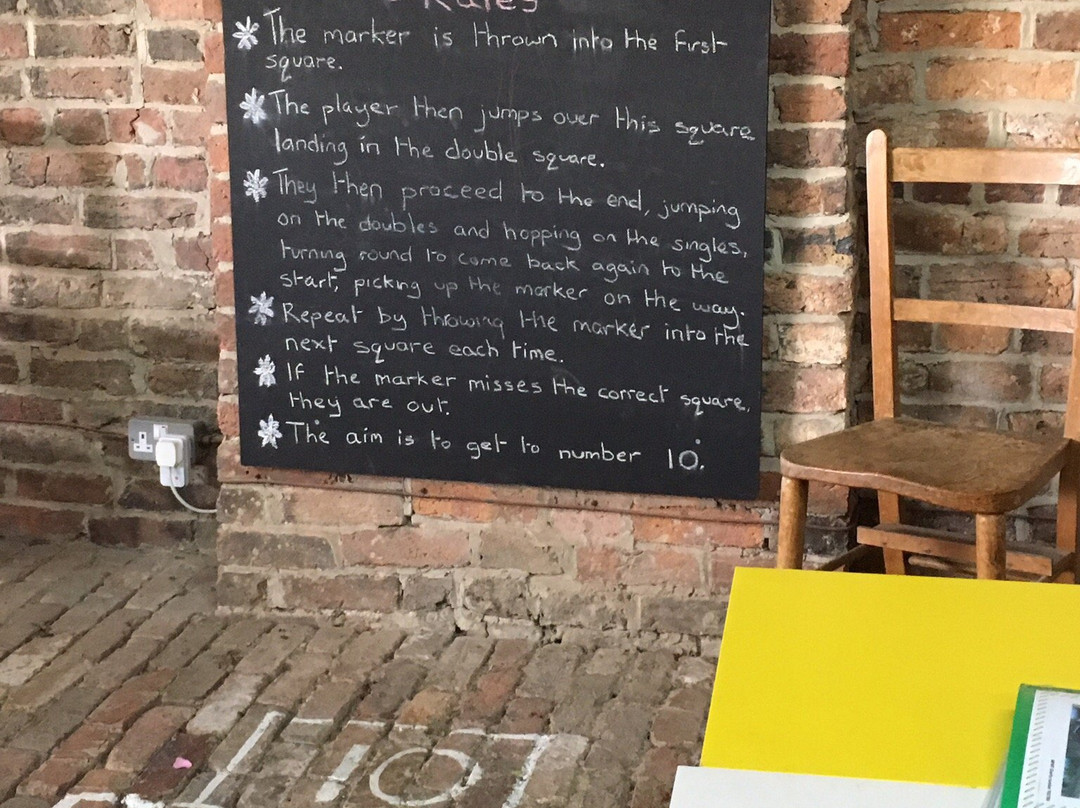 Rules
The marker is thrown into the first
square.
The player then jumps over this square
landing in the double square.
They then proceed to the end, jumping
on the doubles and hopping on the singles,
turning round to come back again to the
start, picking up the marker on the way.
Repeat by throwing the marker into the
next square each time.
If the marker misses the correct square,
they are out.
The aim is to get to number 10.
10